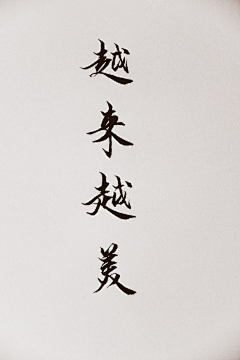 越来越美